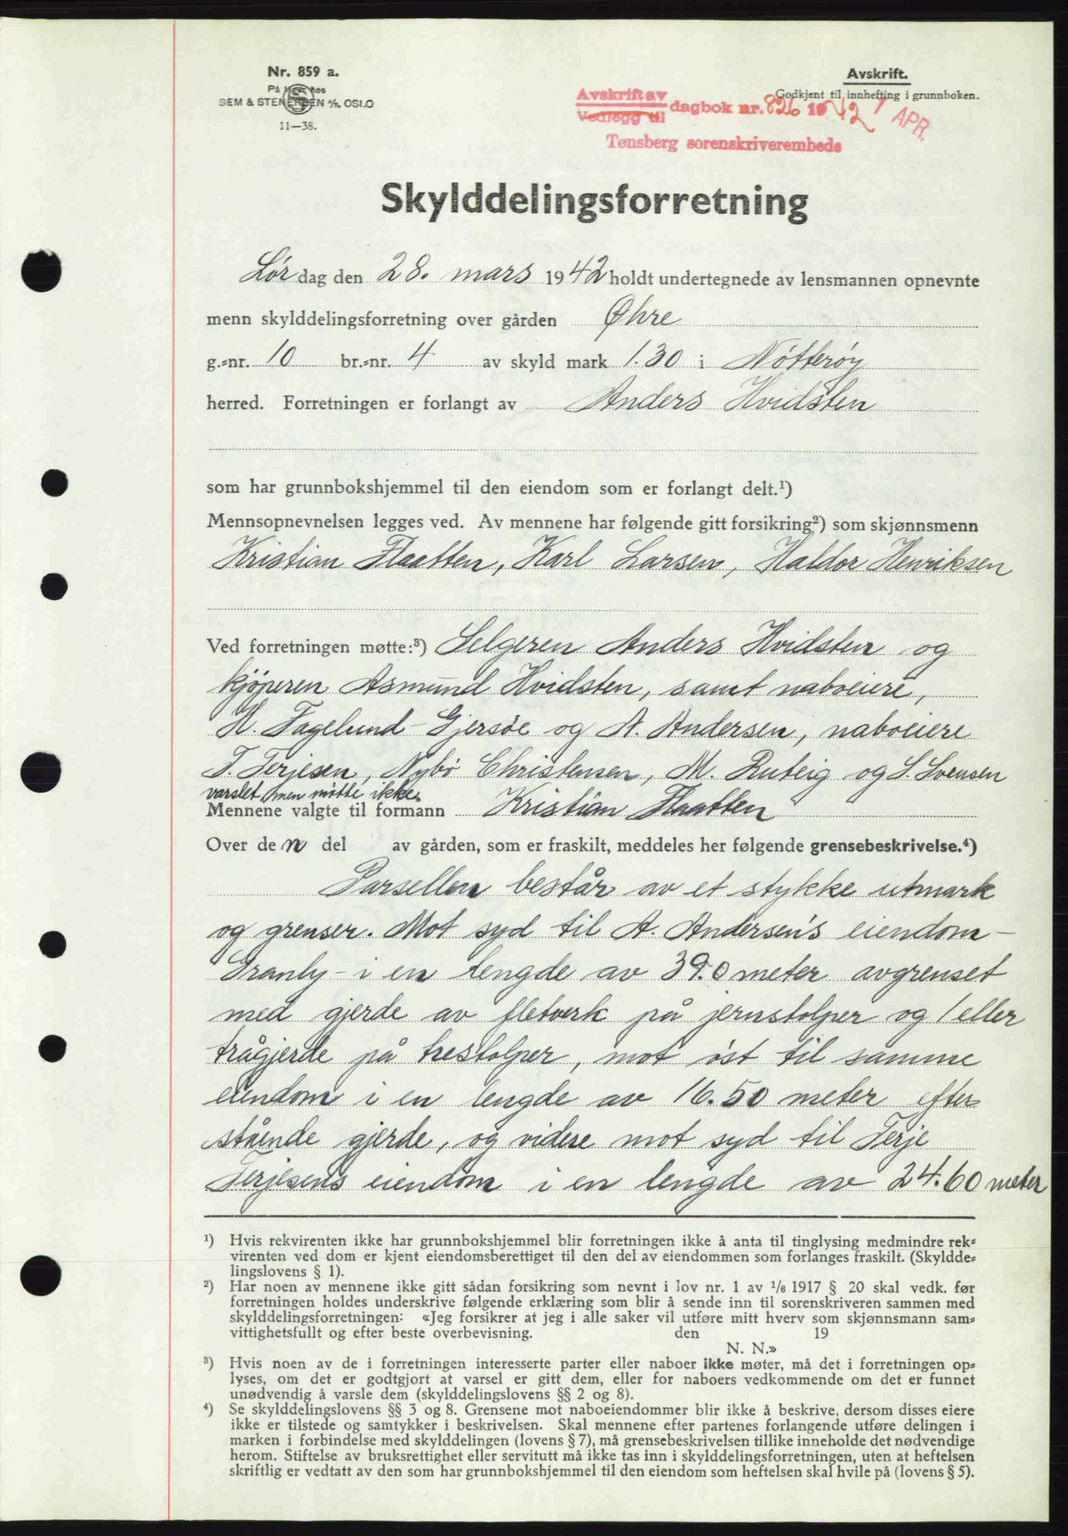 Nr. 859 a.
På lager hos
SEM & STENERSEN A/S, OSLO
11—38.
Avskrift.
Godkjent til innhefting i grunnboken.
Avskrift av
Vedlegg til dagbok nr. 826 1942 1 APR.
Tønsberg sorenskriverembede
Skylddelingsforretning
Lørdag den 28. mars 1942 holdt undertegnede av lensmannen opnevnte
menn skylddelingsforretning over gården Øhre
g.-nr. 10 br.-nr. 4 av skyld mark 1.30 i Nøtterøy
herred. Forretningen er forlangt av Anders Hvidsten
som har grunnbokshjemmel til den eiendom som er forlangt delt.¹)
Mennsopnevnelsen legges ved. Av mennene har følgende gitt forsikring²) som skjønnsmenn
Kristian Flaatten, Karl Larsen, Haldor Henriksen
Ved forretningen møtte:³) Selgeren Anders Hvidsten og
kjöperen Asmund Hvidsten, samt naboeiere,
H. Fagelund-Gjersöe og A. Andersen, naboeiere
T. Terjesen, Nybö Christensen, M. Ruteig og S. Svensen
varslet, men mötte ikke.
Mennene valgte til formann Kristian Flaatten
Over den del av gården, som er fraskilt, meddeles her følgende grensebeskrivelse.⁴)
Parsellen består av et stykke utmark
og grenser. Mot syd til A. Andersen's eiendom -
Granly - i en lengde av 39.0 meter avgrenset
med gjerde av fletverk på jernstolper og / eller
trågjerde på trestolper, mot öst til samme
eiendom i en lengde av 16.50 meter efter
stående gjerde, og videre mot syd til Terje
Terjesens eiendom i en lengde av 24.60 meter
¹) Hvis rekvirenten ikke har grunnbokshjemmel blir forretningen ikke å anta til tinglysing medmindre rek-
virenten ved dom er kjent eiendomsberettiget til den del av eiendommen som forlanges fraskilt. (Skyldde-
lingslovens § 1).
²) Har noen av mennene ikke gitt sådan forsikring som nevnt i lov nr. 1 av 1/6 1917 § 20 skal vedk. før
forretningen holdes underskrive følgende erklæring som blir å sende inn til sorenskriveren sammen med
skylddelingsforretningen: «Jeg forsikrer at jeg i alle saker vil utføre mitt hverv som skjønnsmann sam-
vittighetsfullt og efter beste overbevisning. den 19
N. N.»
³) Hvis noen av de i forretningen interesserte parter eller naboer ikke møter, må det i forretningen op-
lyses, om det er godtgjort at varsel er gitt dem, eller for naboers vedkommende om det er funnet
unødvendig å varsle dem (skylddelingslovens §§ 2 og 8).
⁴) Se skylddelingslovens §§ 3 og 8. Grensene mot naboeiendommer blir ikke å beskrive, dersom disses eiere
ikke er tilstede og samtykker i beskrivelsen. Skal mennene efter partenes forlangende utføre delingen i
marken i forbindelse med skylddelingen (lovens § 7), må grensebeskrivelsen tillike inneholde det nødvendige
herom. Stiftelse av bruksrettighet eller servitutt må ikke tas inn i skylddelingsforretningen, uten at heftelsen
skriftlig er vedtatt av den som har grunnbokshjemmel til den eiendom som heftelsen skal hvile på (lovens § 5).